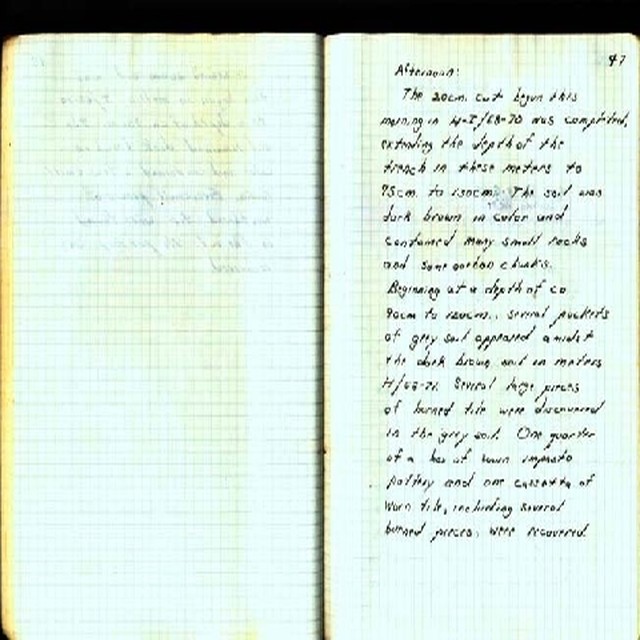 47
Afternoon:
The 20cm. cut begun this
morning in H-I/68-70 was completed,
extending the depth of the
trench in these meters to
95cm. to 120cm. The soil was
dark brown in color and
contained many small rocks
and some carbon chunks.
Beginning at a depth of ca
90cm to 120cm., several pockets
of grey soil appeared amidst
the dark brown soil in meters
H/68-70. Several large pieces
of burned tile were discovered
in the grey soil. One quarter
of a box of worn impasto
pottery and one cassetta of
worn tile, including several
burned pieces, were recovered.